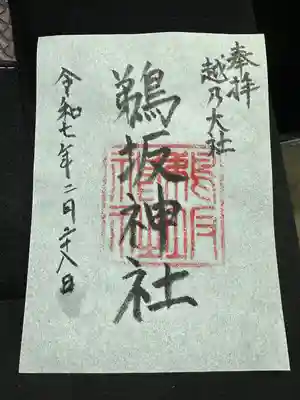 奉拝
越乃大社
鵜坂神社
令和七年二月二十八日
鵜坂神社